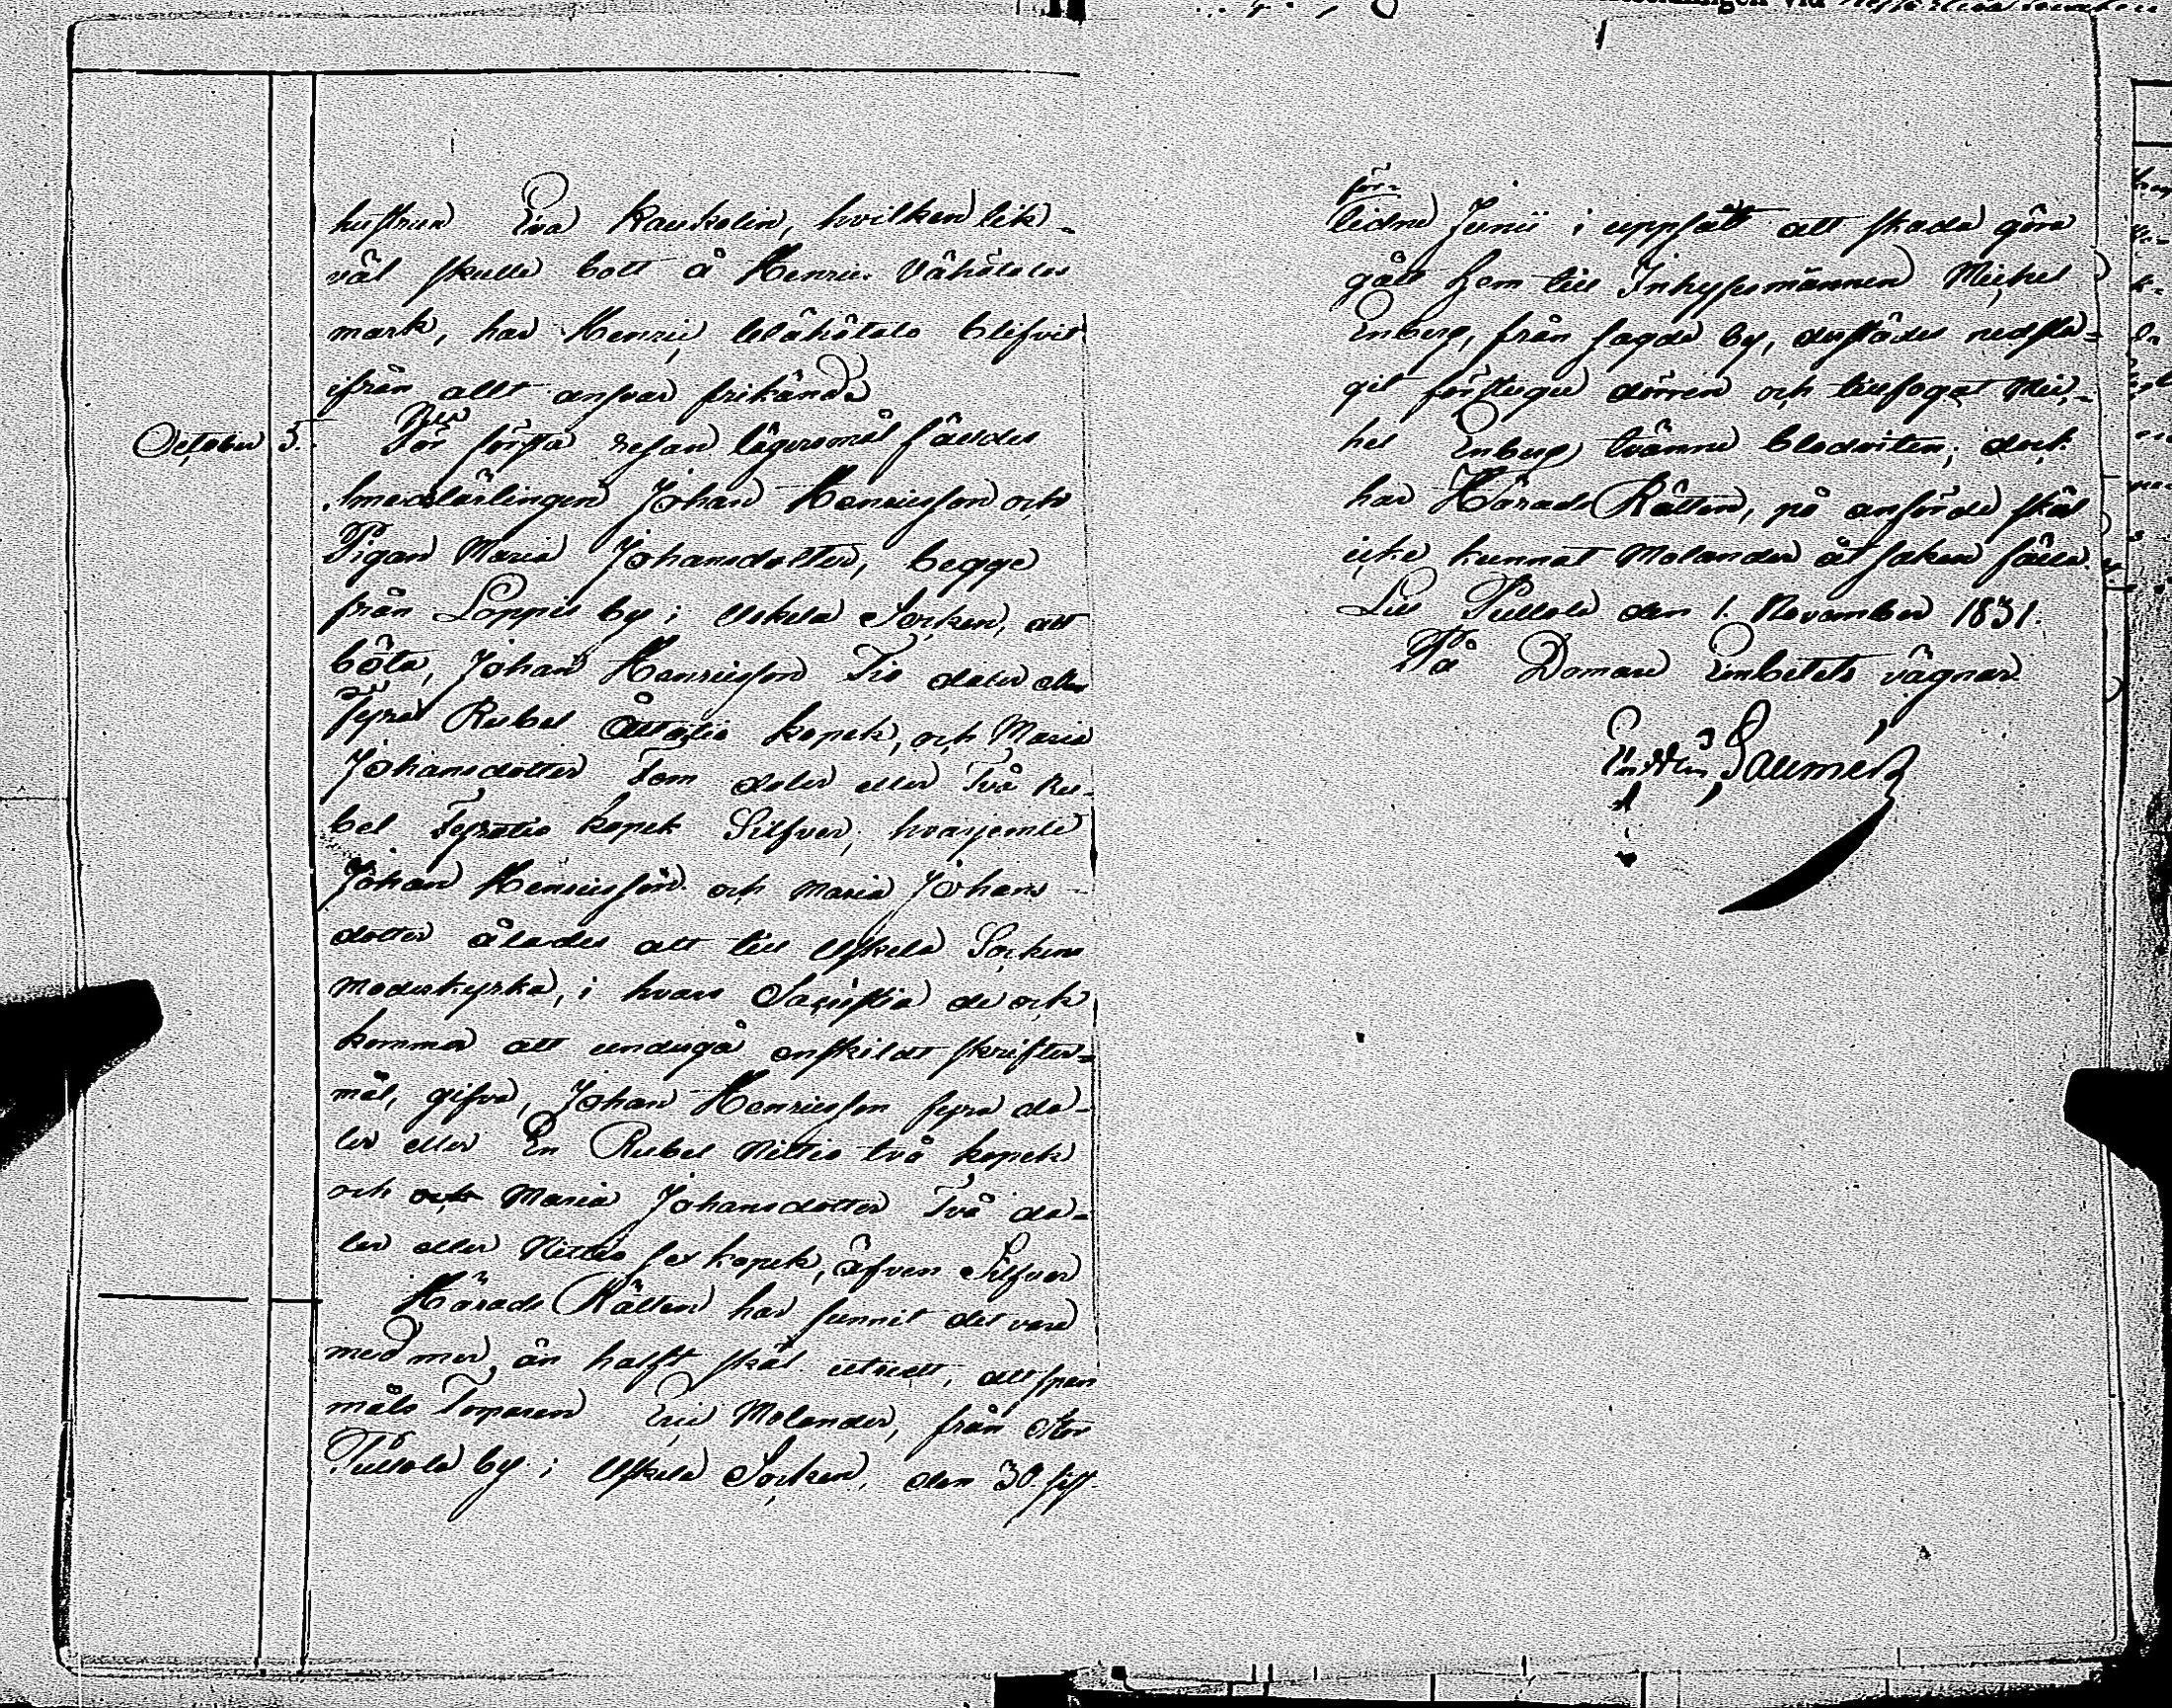 hustrun Eva Kaukolin, hvilken lik-
väl skulle bott å Henric Vähätalos
mark, har Henric Wähätalo blifvit
ifrån allt ansvar frikänd.
October 5. För första resan lägersmål fälldes
Smedslärlingen Johan Henricsson och
Pigan Maria Johansdotter, begge
från Loppis by i Uskela Socken, att
böta, Johan Henricsson Tio daler eller
fyra Rubel Åttatio kopek, och Maria
Johansdotter Fem daler eller Två Ru-
bel Fyratio kopek Silfver, hvarjemte
Johan Henricsson och Maria Johans-
dotter ålades att till Uskela Sockens
Moderkyrka, i hvars Sacristia de ock
komma att undergå enskildt skrifter-
mål, gifva, Johan Henricsson fyra da-
ler eller En Rubel Nittio två kopek
och och Maria Johansdotter Två da-
ler eller Nittio sex kopek, äfven Silfver
Härads Rätten har funnit det vara
med mer än halft skäl utredt, att span
måls Torparen Eric Molander, från Stor
Pullola by i Uskela Socken, den 30. sist-
för-
lidne Junii i uppsåt att skada göra
gått hem till Inhysesmannen Michel
Enberg, från sagde by, derstädes nedsla-
git förstugu dörren och tillfogat Mic-
hel Enberg tvänne blodviten; dock
har Härads Rätten, på anförde skäl
icke kunnat Molander åt saken fälla.
Lill Pullola den 1. November 1831.
På Domare Embetets vägnar